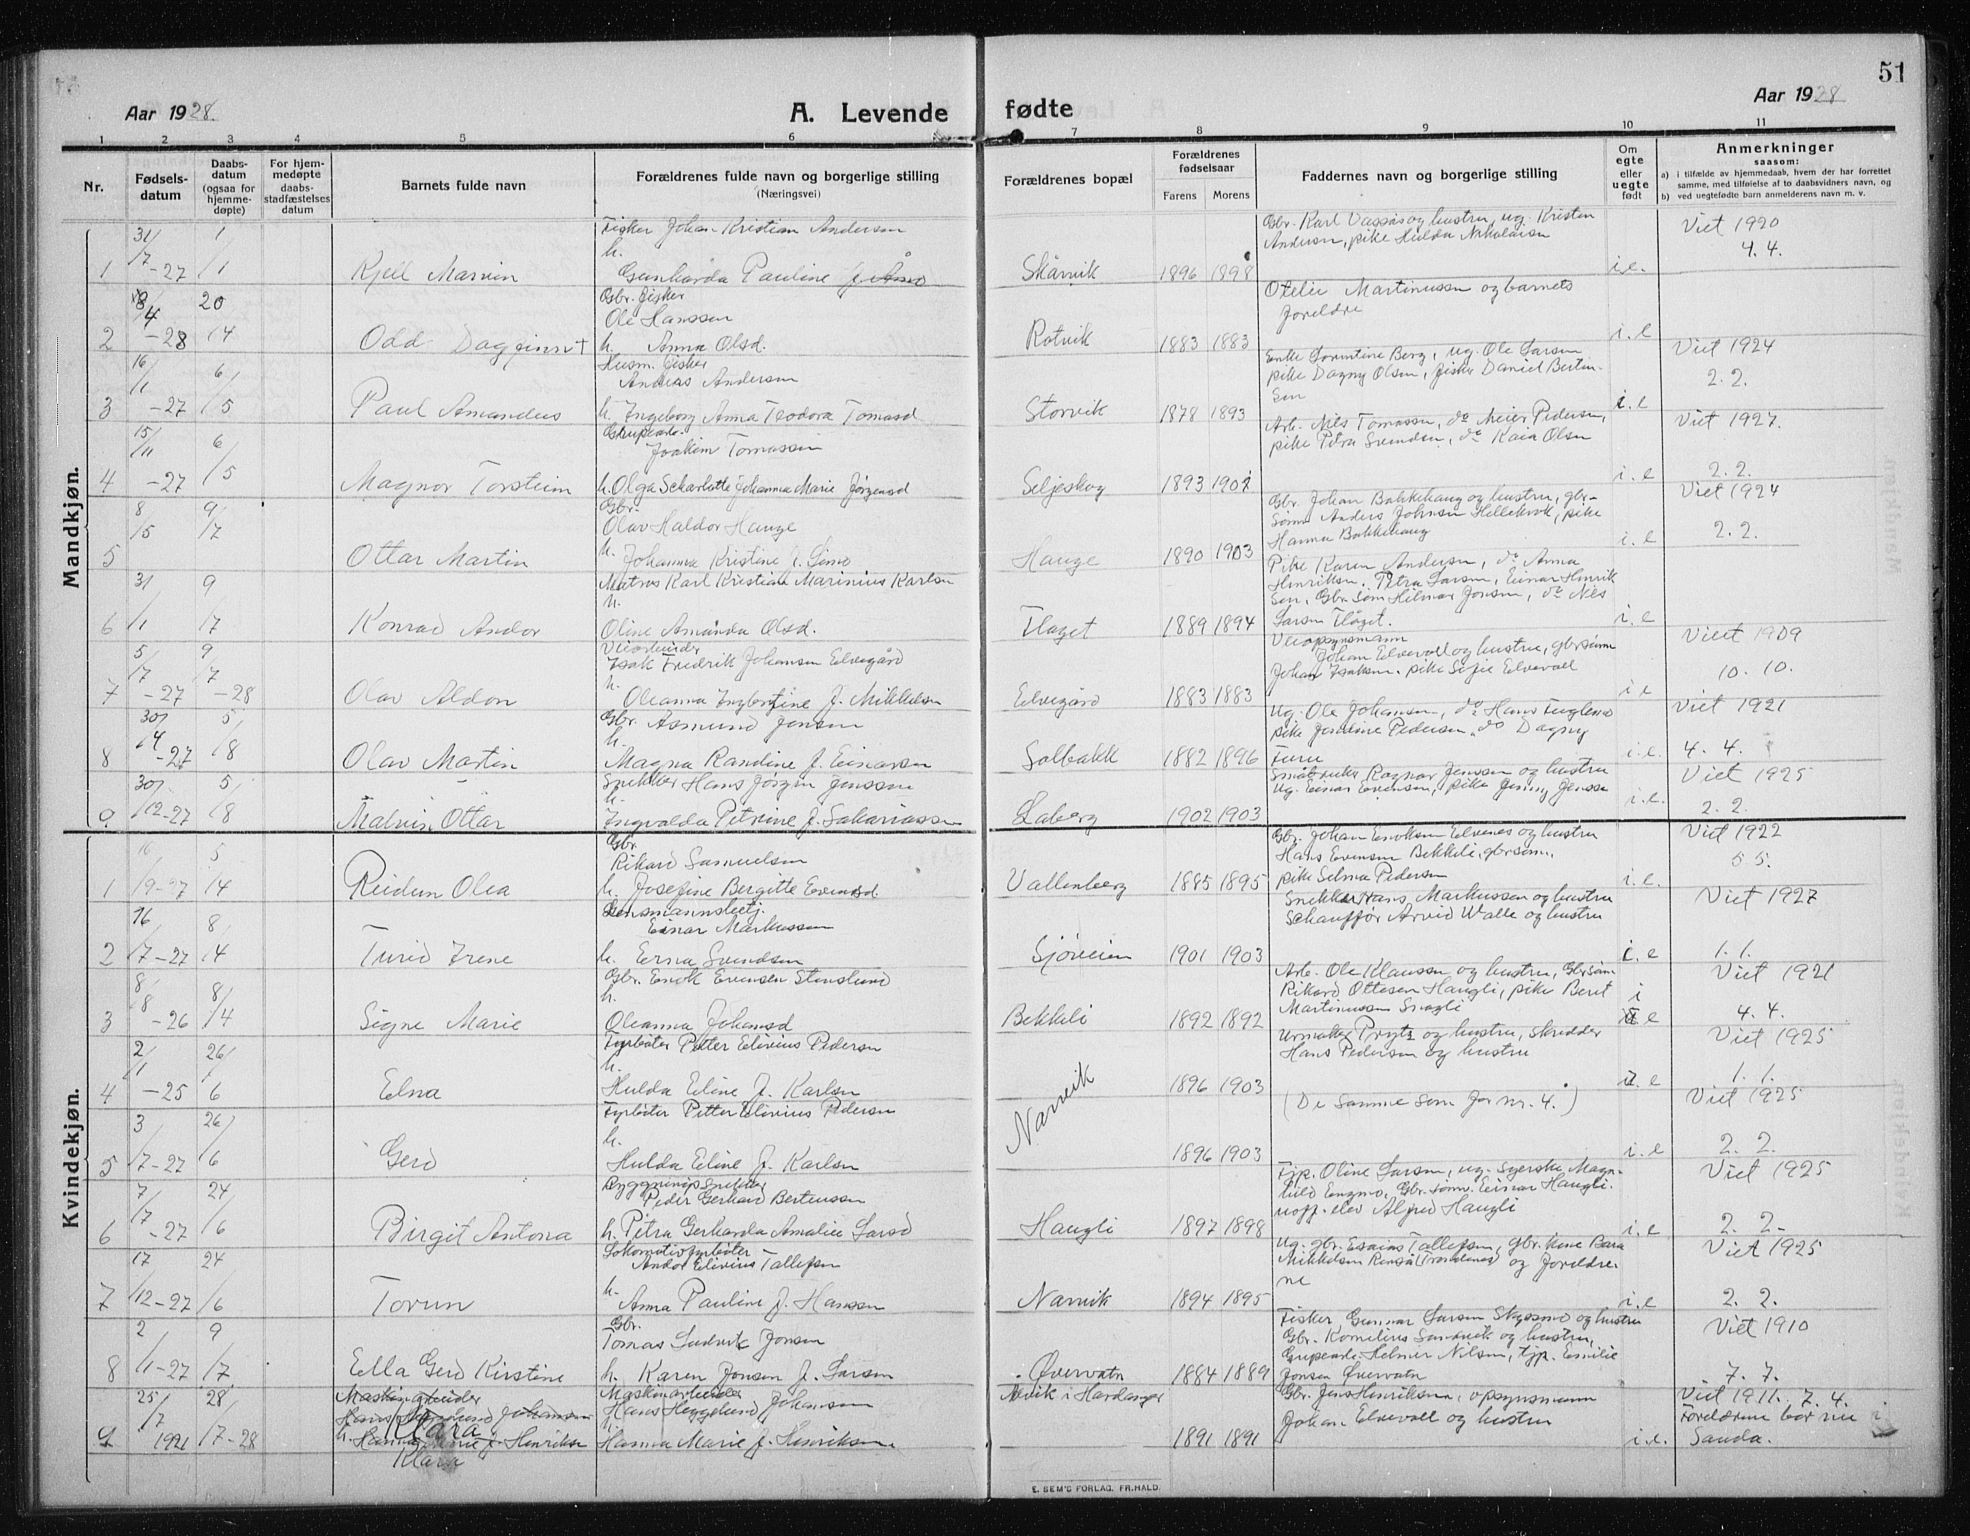 Aar 1928.
A. Levende fødte
Aar 1928
51
1 2 3 4 5 6 7 8 9 10 11
Nr.
Fødsels-
datum
Daabs-
datum
(ogsaa for
hjemme-
døpte)
For hjem-
medøpte
daabs-
stadfæstelses
datum
Barnets fulde navn
Forældrenes fulde navn og borgerlige stilling
(Næringsvei)
Forældrenes bopæl
Forældrenes
fødselsaar
Farens Morens
Faddernes navn og borgerlige stilling
Om
egte
eller
uegte
født
Anmerkninger
saasom:
a) i tilfælde av hjemmedaab, hvem der har forrettet
samme, med tilføielse af to daabsvidners navn, og
b) ved uegtefødte barn anmelderens navn m. v.
Mandkjøn.
1 31/7-27 1/1 Kjell Marvin
Fisker Johan Kristian Andersen
h.
Gunharda Pauline
Skårvik 1896 1898
Gbr. Karl Vassås og hustru, ug. Kristen
Andersen, pike Hulda Nikolaisen
i.e.
Viet 1920
4.4.
2 -28 20/4 Odd Dagfinn +
Gbr. fisker
Ole Hanssen
h. Anna Olsd.
Rotvik 1883 1883
Otelie Martinussen og barnets
foreldre
i.e
3 16/1-27 6/5 Paul Amandus
Husm. fisker
Andreas Andersen
h. Ingeborg Anna Teodora Tomasd
Storvik 1878 1893
Enke Sorentine Berg, ug. Ole Larsen
pike Dagny Olsen, fisker Daniel Berten-
sen
i.e
Viet 1924
2.2.
4 15/11-27 6/5 Magnor Torstein
Grupearb.
Joakim Tomassen
h. Olga Scharlotte Johanna Marie Jørgensd
Seljeskog 1893 1901
Arb. Nils Tomassen, do Meier Pedersen,
pike Petra Svendsen, do Kaia Olsen
i.e
Viet 1927.
2.2.
5 8/5 9/7 Ottar Martin
Gbr.
Olav Haldor Hauge
h. Johanna Kristine f. Simo
Hauge 1890 1903
Gbr. Johan Bakkehaug og hustru, gbr-
sønn Anders Johnsen Hellekrok, pike
Hanna Bakkehaug
i.e
Viet 1924
2.2.
6 31/1 9/7 Konrad Andor
Matros Karl Kristian Marinius Karlsen
h.
Oline Amanda Olsd.
Fløget 1889 1894
Pike Karen Andersen, do Anna
Henriksen, Petra Larsen, Einar Henrik
sen, Gbr. søn Hilmar Jonsen, do Nils
Larsen Fløget.
i.e
Viet 1909
10.10.
7 5/7-27 9/7-28 Olav Aldon
Veiarbeider
Isak Fredrik Johansen Elvegård
h.
Oleanna Ingbertine f. Mikkelsen
Elvegård 1883 1883
Veiopsynsmann
Johan Elvevoll og hustru, gbrsønn
Johan Isaksen, pike Sofie Elvevoll
i.e
8 30/4-27 5/8 Olav Martin
Gbr. Asmund Jensen
h.
Magna Randine f. Einarsen
Solbakk 1882 1896
Ug. Ole Johansen, do Hans Fuglenes
pike Jensine Pedersen, do Dagny
Furu
i.e.
Viet 1921
4.4.
9 30/12-27 5/8 Malvin Ottar
Snekker Hans Jørgen Jenssen
h.
Ingvalda Petrine f. Sakariassen
Laberg 1902 1903
Småbruker Ragnar Jenssen og hustru
Ug. Einar Evensen, pike Jenny Jenssen
i.e.
Viet 1925
2.2.
Kvindekjøn.
1 16/9-27 5/4 Reidun Olea
Gbr
Rikard Samuelsen
h. Josefine Bergitte Evensd.
Vallenberg 1885 1895
Gbr. Johan Enoksen Elvenes og hustru
Hans Evensen Bekkeli, gbrsønn,
pike Selma Pedersen
i.e.
Viet 1922
5.5.
2 16/7-27 8/4 Turid Irene
Lensmannsbetj.
Einar Markussen
h. Erna Svendsen
Sjøveien 1901 1903
Snekker Hans Markussen og hustru
Schauffør Arvid Walle og hustru
i.e
Viet 1927
1.1.
3 8/8-26 8/4 Signe Marie
Gbr. Enok Evensen Stenslund
h.
Oleanna Johansd
Bekkeli 1892 1892
Arb. Ole Klaussen og hustru, Gbrsønn
Rikard Ottesen Haugli, pike Beret
Martinussen Snøgli
i e
Viet 1921
4.4.
4 2/1-25 26/6 Elna
Fyrbøter Petter Elivius Pedersen
h.
Hulda Eline f. Karlsen
Narvik 1896 1903
Urmaker Prytz og hustru, skredder
Hans Pedersen og hustru
i.e
Viet 1925
1.1.
5 3/7-27 26/6 Gerd
Fyrbøter Petter Elivius Pedersen
h.
Hulda Eline f. Karlsen
Narvik 1896 1903
(De samme som for nr. 4.)
i.e
Viet 1925
2.2.
6 7/7-27 24/6 Birgit Antona
Bygningssnekker
Peder Gerhard Bertensen
h. Petra Gerharda Amalie Larsd
Haugli 1897 1898
Tjp. Oline Larsen, ug. Syerske Magn-
hild Engmo, Gbr. sønn Einar Haugli.
uoff. elev Alfred Haugli
i.e
Viet 1925
2.2.
7 17/12-27 24/6 Torun
Lokomotivfyrbøter
Andor Elivius Tollefsen
h.
Anna Pauline f. Hansen
Narvik 1894 1895
Ug. gbr. Esaias Tollefsen, gbr. kone Bara
Mikkelsen Renså (Trondenes) og foreldre-
ne
i.e
Viet 1925
2.2.
8 2/1-27 9/7 Ella Gerd Kirstine
Gbr.
Tomas Ludvik Jonsen
h. Karen Jonsen f. Larsen
Øvervatn 1884 1889
Fisker Gunnar Larsen Skyssmo og hustru
Gbr. Kornelius Sandvik og hustru,
Grupearb. Helmer Nilsen, tjp. Emilie
Jonsen Øvervatn
Viet 1910
7.7.
9 25/7 1921 28/7-28
Maskinarbeider
Hans Heggelund Johansen
h. Hanna Marie f. Henriksen
Klara
Klara
Maskinarbeider
Hans Heggelund Johansen
h.
Hanna Marie f. Henriksen.
Ålvik i Hardanger
1891 1891
Gbr. Jens Henriksen, opsynsmann
Johan Elvevoll og hustru
i.e.
Viet 1911. 7.4.
Foreldrene bor nu i
Sauda.
E. SEM'S FORLAG, FR.HALD.